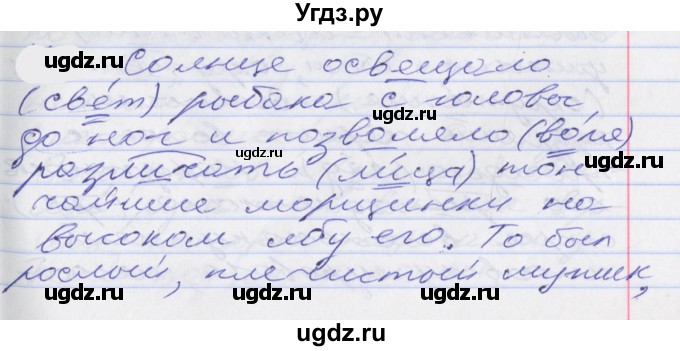 Угдз.ру
Солнце освещало
(свет) рыбака с головы
до ног и позволяло (воля)
различать (лица) тон
чайшие морщинки на
высоком лбу его. То был
рослый, плечистый мужик,
ugdz.ru ugdz.ru ugdz.ru
ugdz.ru
ugdz.ru
ugdz.ru
ugdz.ru
ugdz.ru
ugdz.ru
ugdz.ru